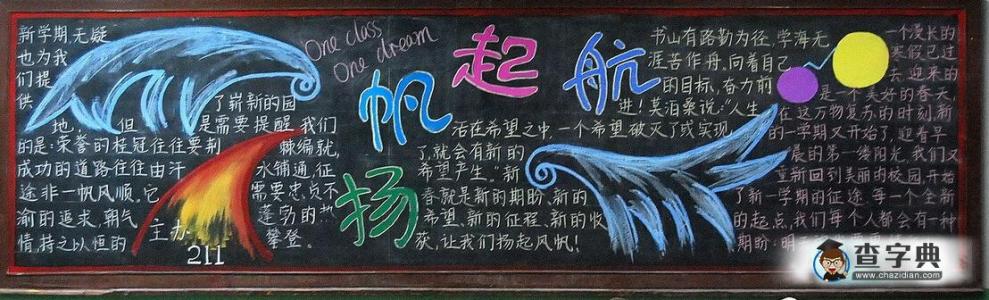 新学期,无疑
也为我
们提
供 了崭新的园
地, 但 是需要提醒我们
的是:荣誉的桂冠往往要荆 棘编就,
成功的道路往往由汗 水铺通,征
途非一帆风顺,它 需要忠贞不
渝的追求,朝气 蓬勃的热
情,持之以恒的 攀登。
主办
211
One class
One dream
扬帆起航
书山有路勤为径,学海无
涯苦作舟,向着自己
的目标,奋力前
进!莫泊桑说:"人生
活在希望之中,一个希望破灭了或实现
了,就会有新的
希望产生。"新
春就是新的期盼、新的
希望、新的征程、新的收
获,让我们扬起风帆!
一个漫长的
寒假已过
去,迎来的
是一个美好的春天,
在这万物复苏的时刻,新
的一学期又开始了,迎着早
晨的第一缕阳光,我们又
重新回到美丽的校园,开始
了新一学期的征途,每一个全新
的起点,我们每个人都会有一种
期盼:明
查字典
www.chazidian.com